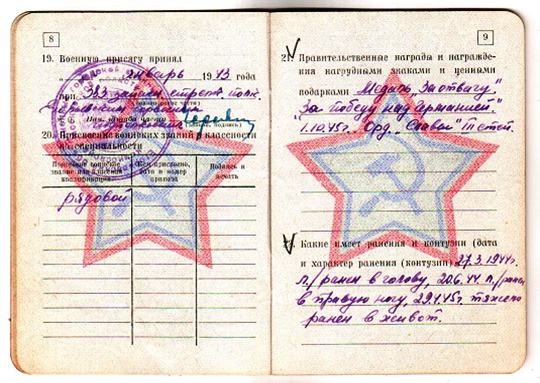 8
19. Военную присягу принял
„ “ январь 1943 года
при 383 запасн. стрелк. полк.
20. Присвоение воинских званий и классности
по специальности
Воинское
звание или классная
квалификация
Кем присвоено,
дата и номер
приказа
Подпись и
печать
рядовой
9
21. Правительственные награды и награжде-
ния нагрудными знаками и ценными
подарками Медаль „За отвагу“
„За победу над Германией“
1.10.45г. Орд. „Славы“ III степ.
22. Какие имеет ранения и контузии (дата
и характер ранения (контузии) 27.3.1944г.
л/ранен в голову, 20.6.44 л/ранен
в правую ногу, 29.4.45г. тяжело
ранен в живот.